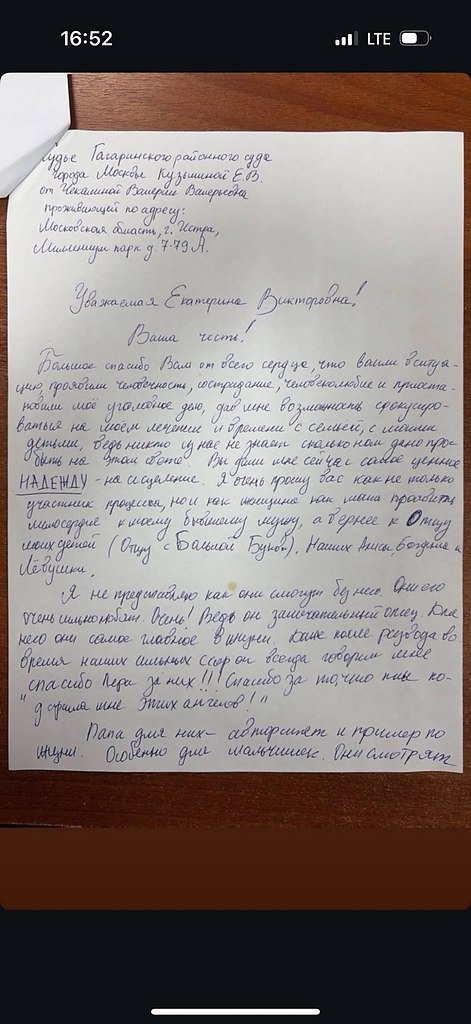 16:52
LTE
Судье Гагаринского районного суда
города Москвы Кузьминой Е.В.
от Чекалиной Валерии Валерьевны
проживающей по адресу:
Московская область, г. Истра,
Миллениум парк д. 7-79 А.
Уважаемая Екатерина Викторовна!
Ваша честь!
Большое спасибо Вам от всего сердца, что вошли в ситуа-
цию, проявили человечность, сострадание, человеколюбие и приоста-
новили моё уголовное дело, дав мне возможность сфокусиро-
ваться на моём лечение и времени с семьёй, с моими
детьми, ведь никто из нас не знает сколько нам дано про-
быть на этом свете. Вы дали мне сейчас самое ценное
НАДЕЖДУ - на исцеление. Я очень прошу вас как не только
участник процесса, но и как женщина как мать проявить
милосердие к моему бывшему мужу, а вернее к Отцу
моих детей (Отцу с Большой Буквы). Наших Алисы, Богдана и
Лёвушки.
Я не представляю как они смогут без него. Они его
очень сильно любят. Очень! Ведь он замечательный отец. Для
него они самое главное в жизни. Даже после развода во
время наших сильных ссор он всегда говорил мне
спасибо Лера за них!!! Спасибо за то, что ты по-
"дарила мне этих ангелов!"
Папа для них - авторитет и пример по
жизни. Особенно для мальчишек. Они смотрят